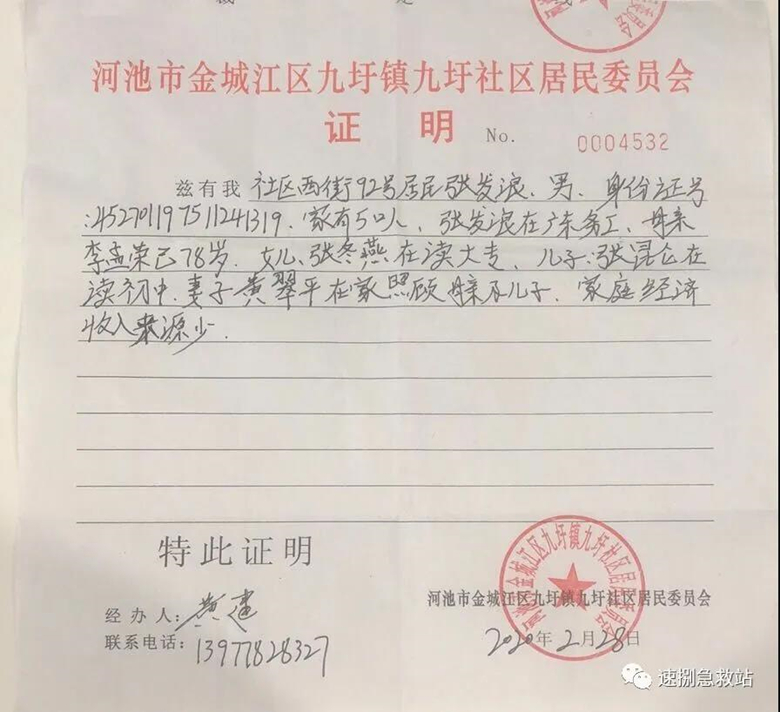 河池市金城江区九圩镇九圩社区居民委员会
证 明 No. 0004532
兹有我 社区西街92号居民张发浪、男、身份证号
:452701197511241319.家有5口人、张发浪在广东务工、母亲
李孟荣已78岁.女儿:张冬燕在读大专、儿子:张昆仑在
读初中.妻子黄翠平在家照顾母亲及儿子.家庭经济
收入来源少.
特此证明
河池市金城江区九圩镇九圩社区居民委员会
经办人:黄建
河池市金城江区九圩镇九圩社区居民委员会
联系电话:13977828327
2020年2月28日
速捌急救站